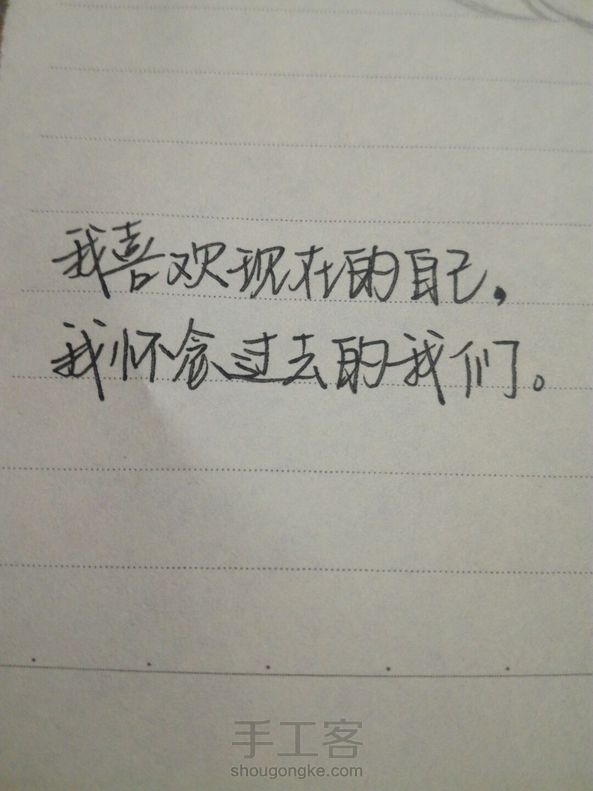 我喜欢现在的自己，
我怀念过去的我们。
手工客
shougongke.com